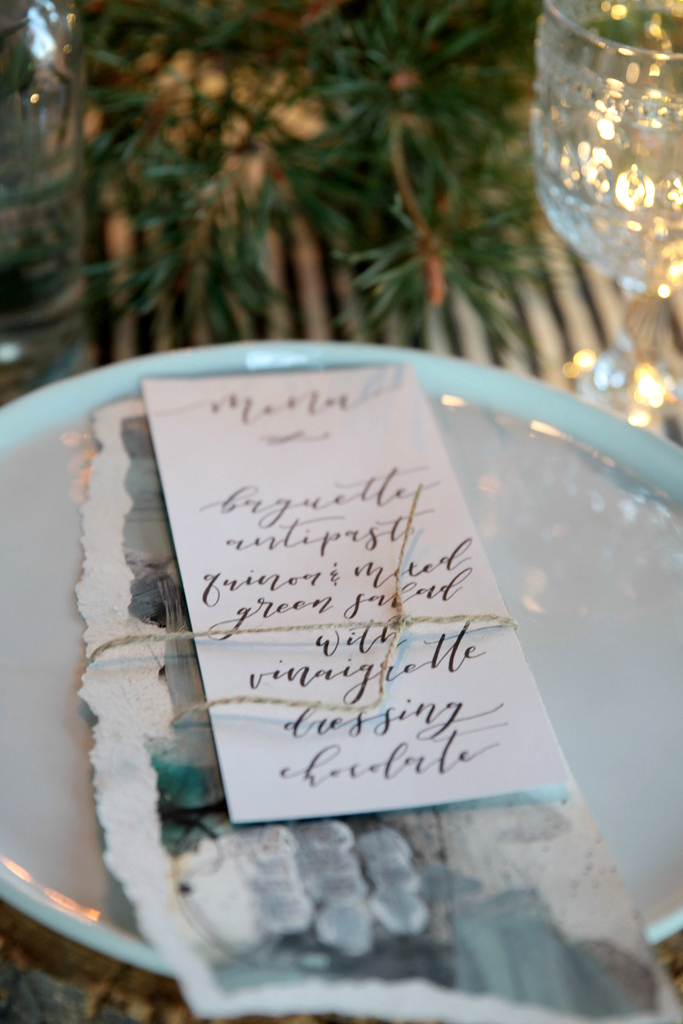 menu
baguette
antipasti
quinoa & mixed
green salad
with
vinaigrette
dressing
chocolate